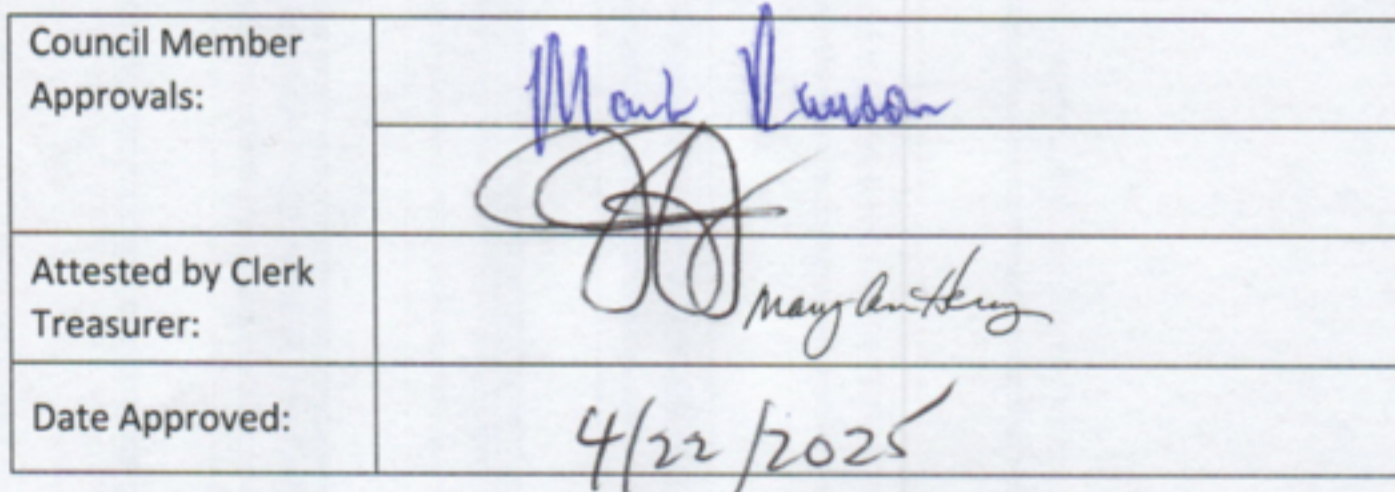 Council Member
Approvals:
Mark
Attested by Clerk
Treasurer:
Mary Ann Henry
Date Approved:
4/22/2025